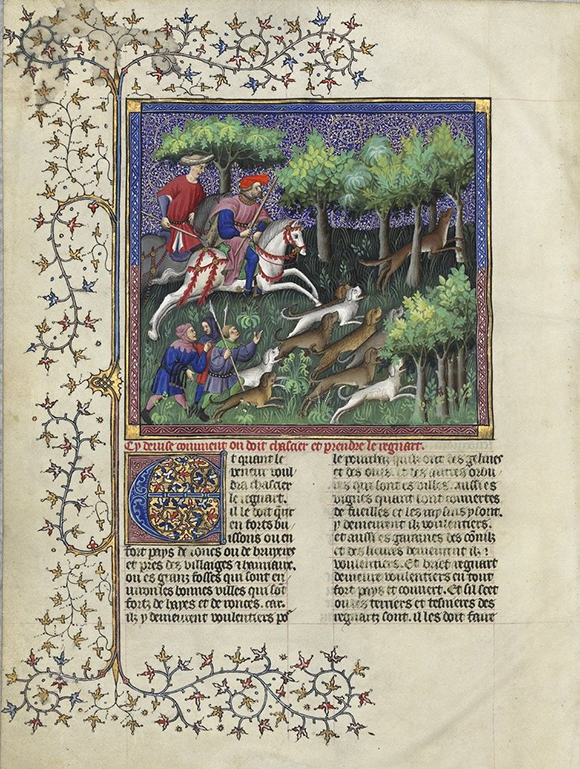 Cy devise comment on doit chasser et prendre le regnart.
Et quant le
veneur voul
dra chasser
le regnart.
il le doit que
rir en forts bu
issons ou en
fort pays de ronces ou de bruyeres
et pres des villaiges
ou es grans fosses qui sont en
uiron les bonnes villes qui sot
fortz de hayes et de ronces. car
ilz y demeurent voulentiers po
le pourchaz quilz ont des gelines
et des oues et des autres ordu
res qui sont es villes. aussi es
vignes quant sont couuertes
de fueilles et les raysins y sont.
y demeurent ilz voulentiers.
et aussi es garennes des conilz
et des lieures demeurent ilz
voulentiers. Et brief regnart
demeure voulentiers en tout
fort pays et couuert. Et sil scet
ou les terriers et tesnieres des
regnartz sont. il les doit faire